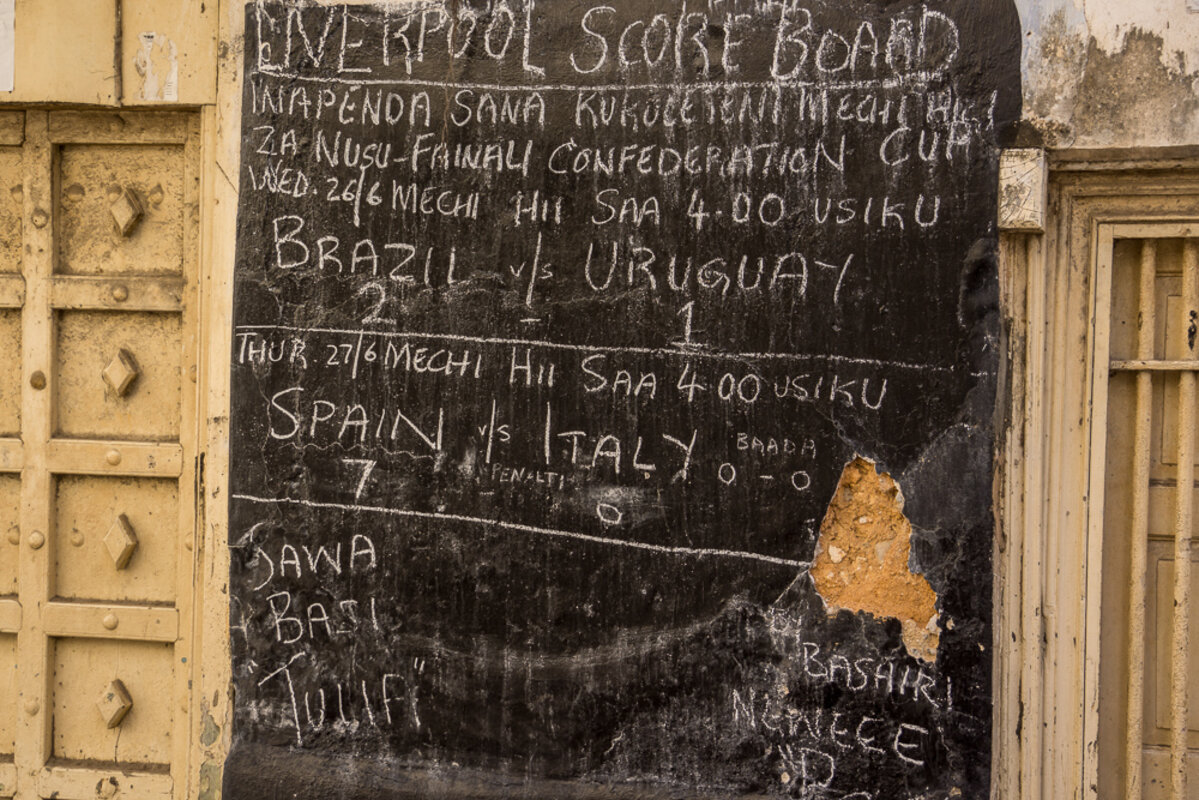 LIVERPOOL SCORE BOARD
INAPENDA SANA KUKULETENI MECHI HIZI
ZA NUSU-FAINALI CONFEDERATION CUP
WED. 26/6 MECHI HII SAA 4.00 USIKU
BRAZIL v/s URUGUAY
2 - 1
THUR 27/6 MECHI HII SAA 4.00 USIKU
SPAIN v/s ITALY BAADA
7 PENALTI 0 0 - 0
SAWA
BAJI
"TULIFI"
BY
BASHIRI
NGWECE
"D